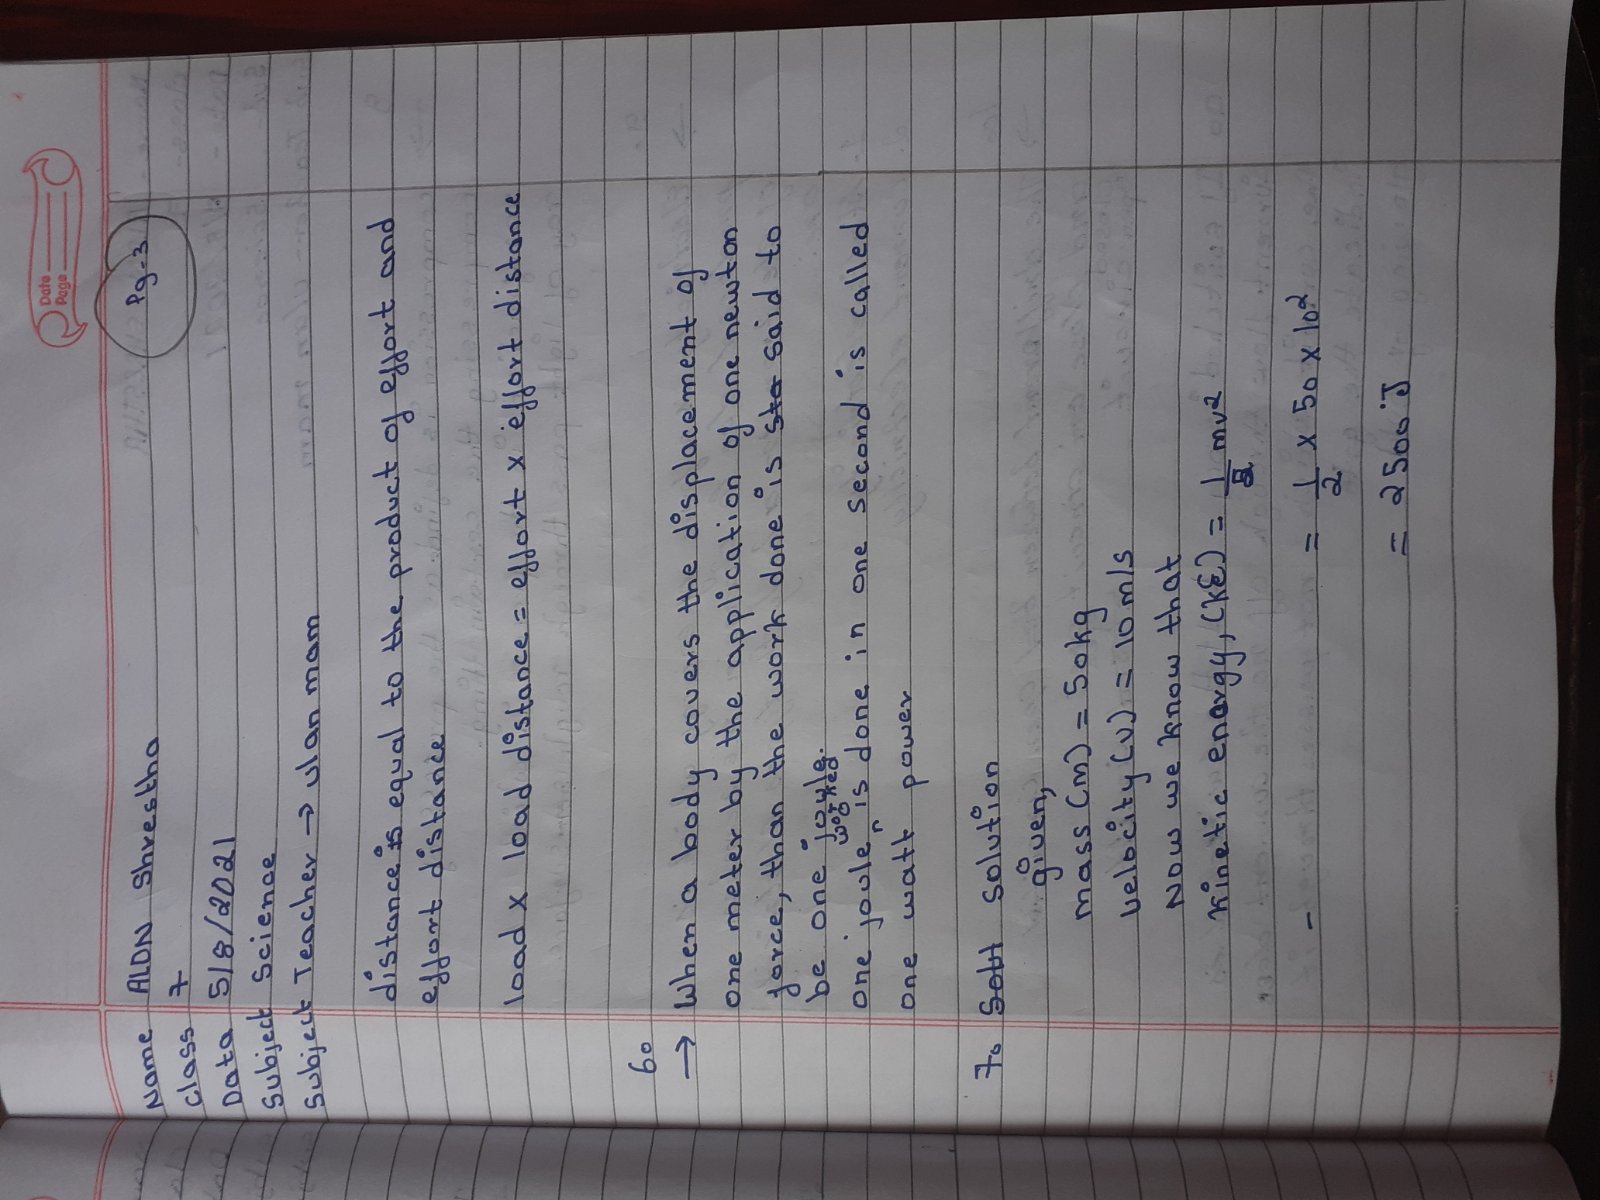 Date
Page
Pg-3
Name ALDN Shrestha
Class 7
Data 5/8/2021
Subject Science
Subject Teacher → ulan mam
distance is equal to the product of effort and
effort distance
load x load distance = effort x effort distance
6.
→ When a body covers the displacement of
one meter by the application of one newton
force, than the work done is sta said to
be one joule.
worked
one joule is done in one second is called
one watt power
7. Solt solution
given,
mass (m) = 50kg
velocity (v) = 10 m/s
Now we know that
kinetic energy, (KE) = 1/2 mv²
= 1/2 x 50 x 10²
= 2500 J